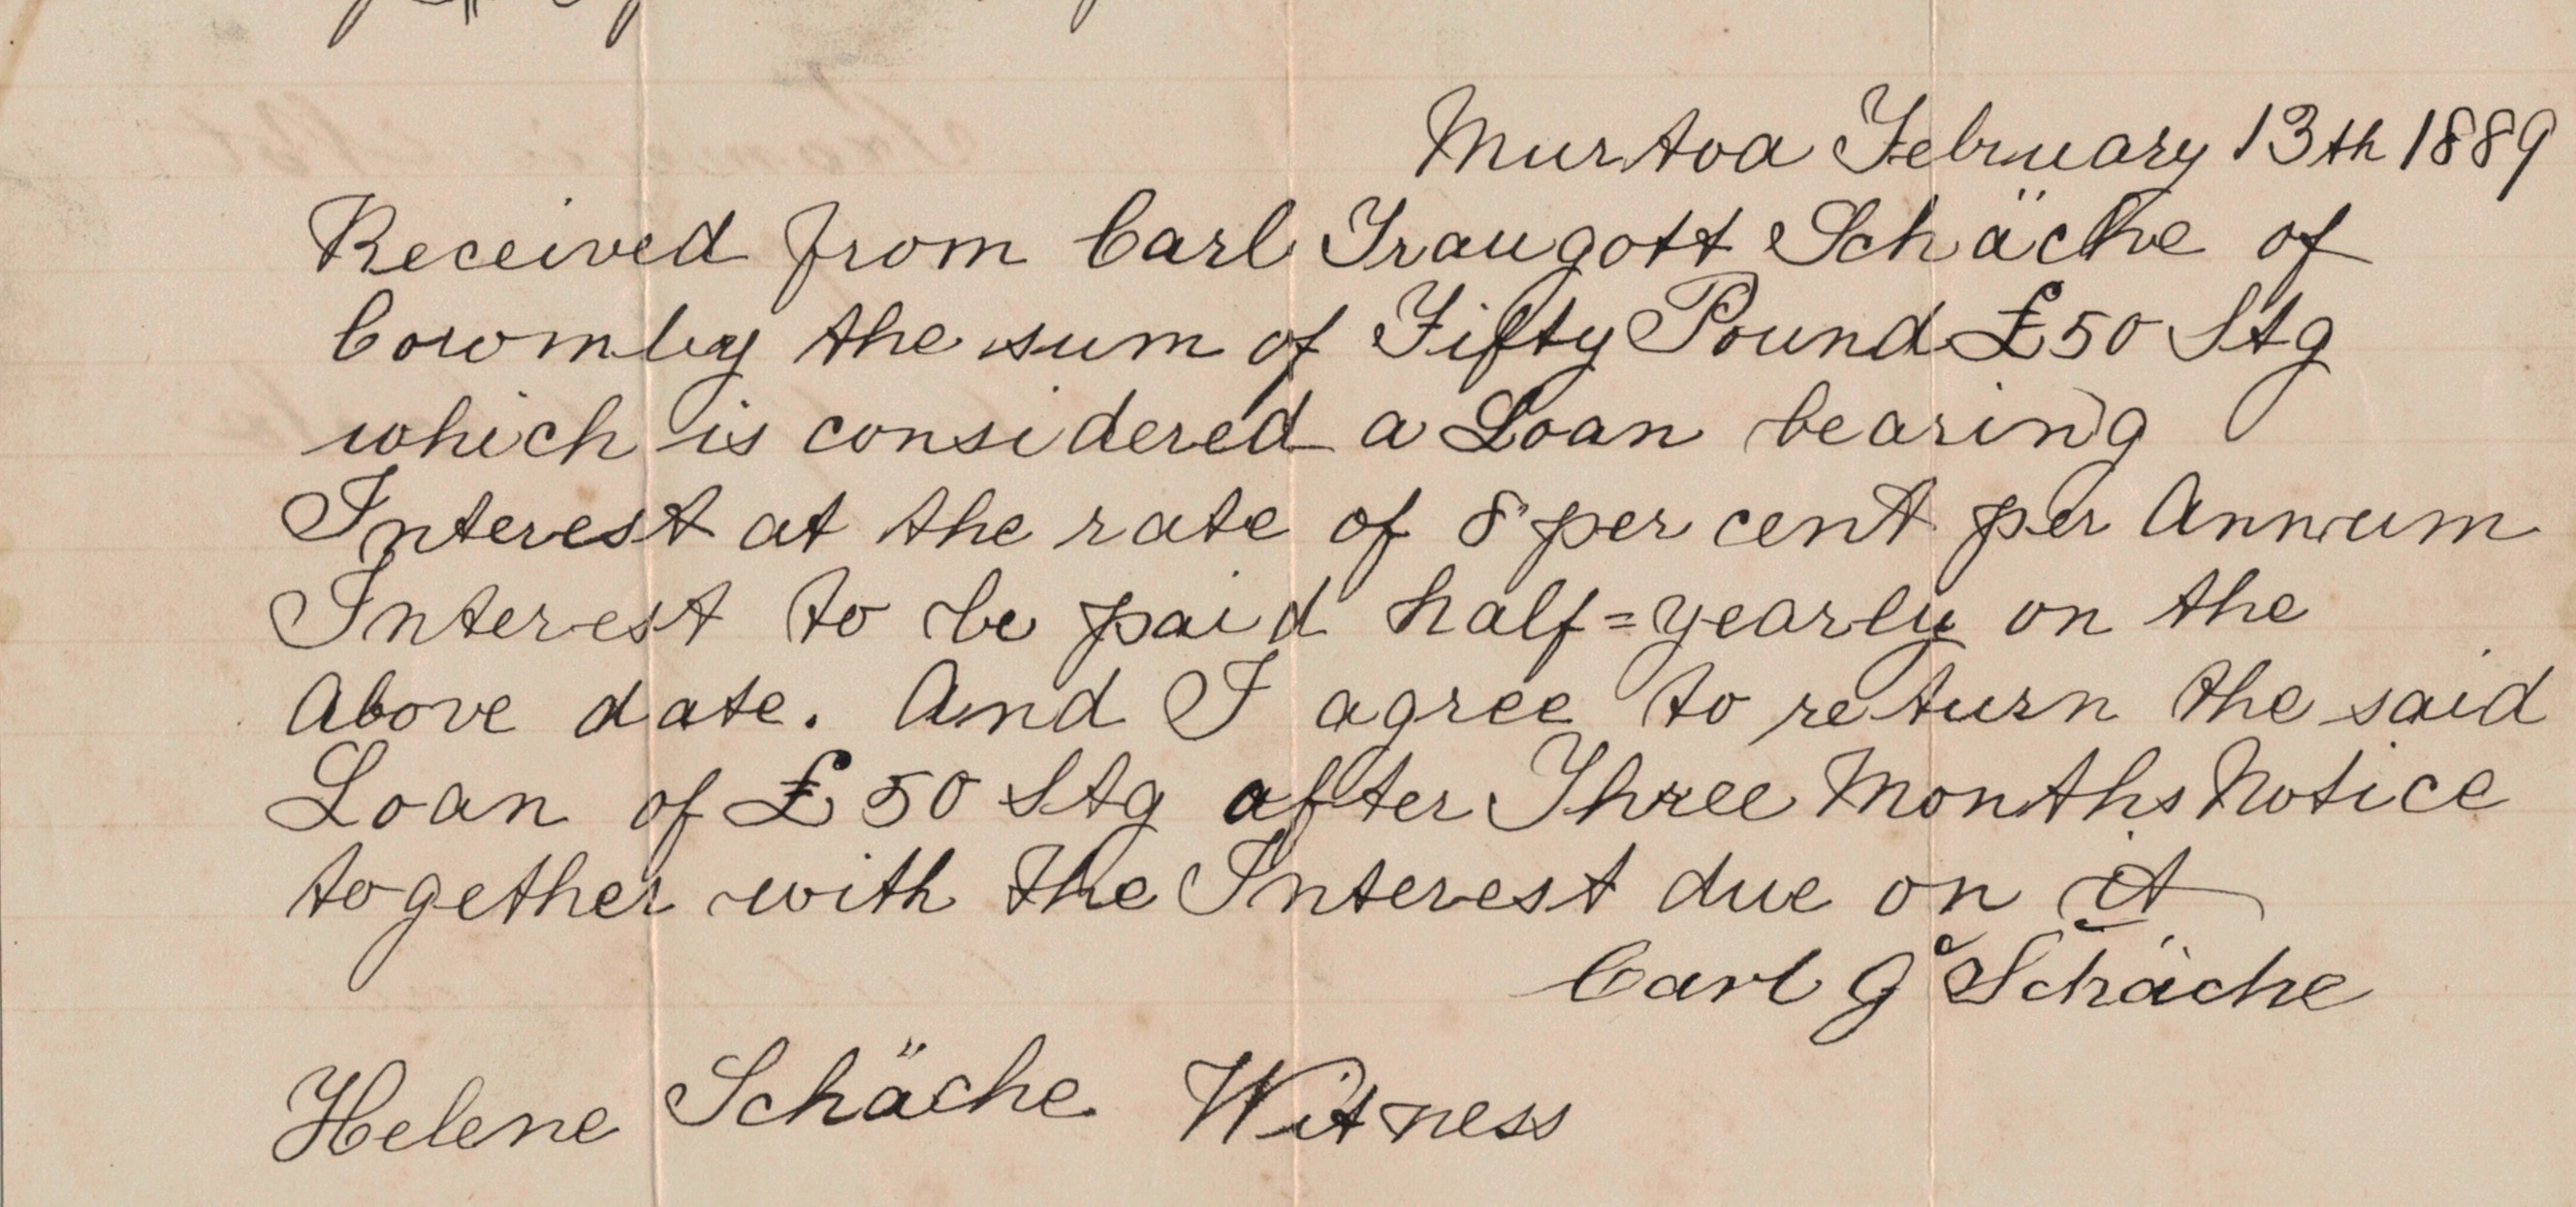 Murtoa February 13th 1889
Received from Carl Traugott Schäche of
Coromby the sum of Fifty Pound £50 Stg
which is considered a Loan bearing
Interest at the rate of 8 per cent per Annum
Interest to be paid half=yearly on the
Above date. And I agree to return the said
Loan of £50 Stg after Three Months Notice
together with the Interest due on it
Carl G Schäche
Helene Schäche Witness